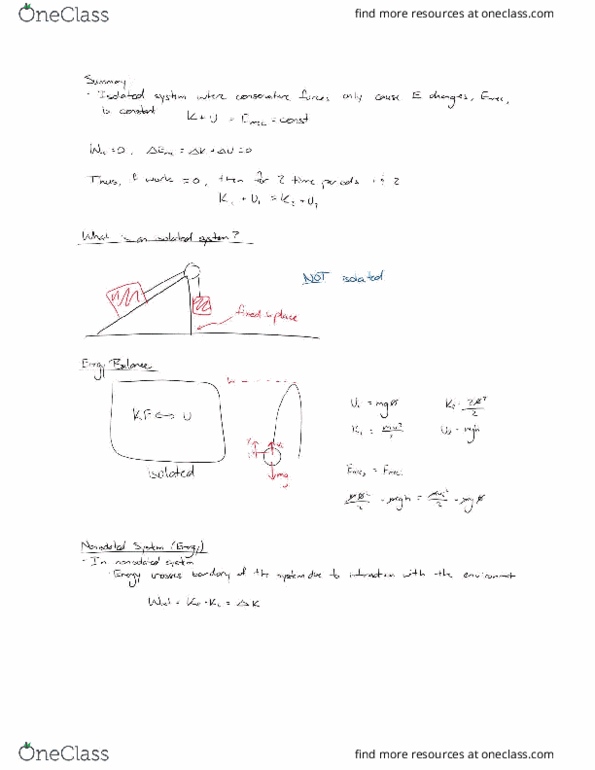 OneClass
find more resources at oneclass.com
Summary:
- Isolated system where conservative forces only cause E changes, Emec,
is constant K+U = Emec = const
ΔEmec = ΔK + ΔU = 0
Thus, if work = 0, then for 2 time periods 1 & 2
K₁ + U₁ = K₂ + U₂
What is an isolated system?
NOT isolated
fixed in place
Energy Balance
KE ↔ U
isolated
mg
U₁ = mg0
U₂ = mgh
Emec₂ = Emec₁
Nonisolated System (Energy)
- In nonisolated system
- Energy crosses boundary of the system due to interaction with the environment
= ΔK
OneClass
find more resources at oneclass.com